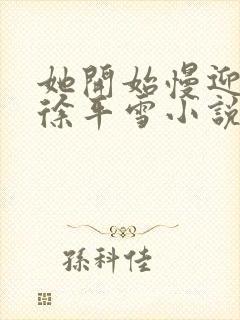 她開始慢迎
徐平雪小說
孫科佳